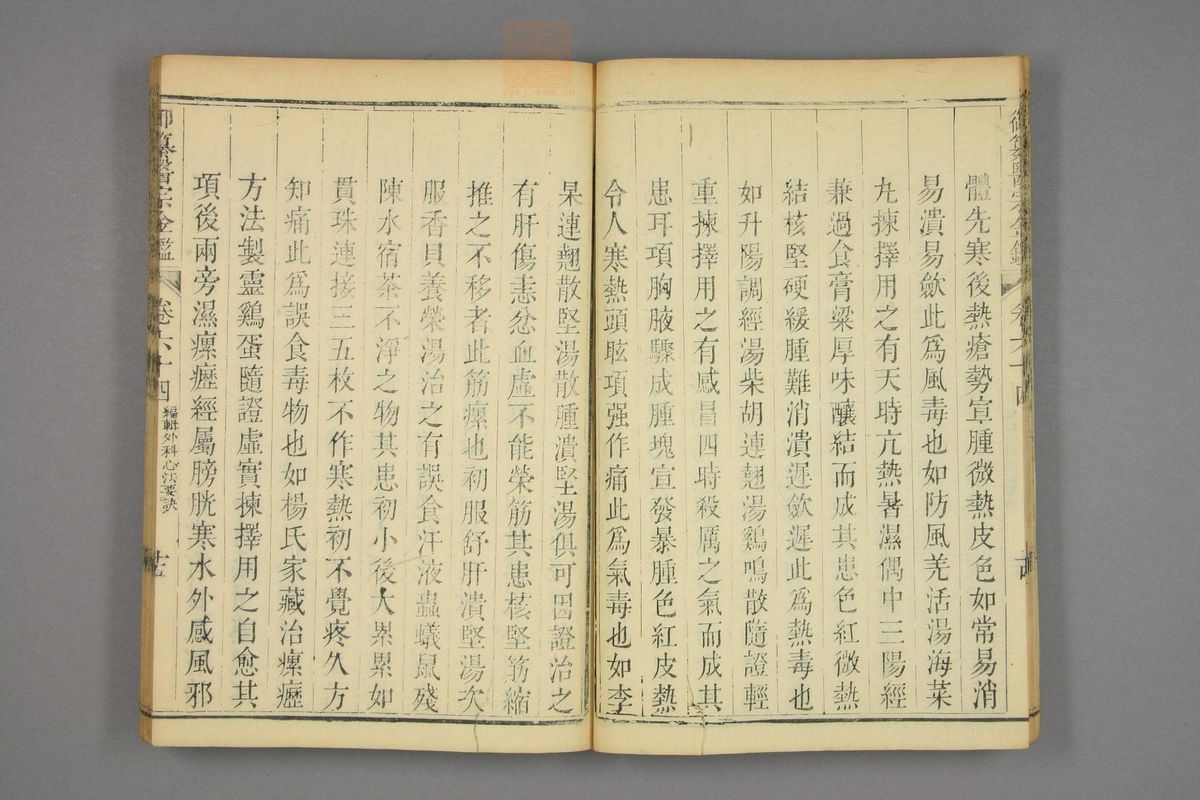 御纂醫宗金鑑 卷六十四
體先寒後熱瘡勢宣腫微熱皮色如常易消
易潰易歛此爲風毒也如防風羌活湯海菜
丸揀擇用之有天時亢熱暑濕偶中三陽經
兼過食膏粱厚味釀結而成其患色紅微熱
結核堅硬緩腫難消潰遲歛遲此爲熱毒也
如升陽調經湯柴胡連翹湯鷄鳴散隨證輕
重揀擇用之有感冒四時殺厲之氣而成其
患耳項胸腋驟成腫塊宣發暴腫色紅皮熱
令人寒熱頭眩項强作痛此爲氣毒也如李
杲連翹散堅湯散腫潰堅湯俱可因證治之
有肝傷恚忿血虛不能榮筋其患核堅筋縮
推之不移者此筋瘰也初服舒肝潰堅湯次
服香貝養榮湯治之有誤食汗液蟲蟻鼠殘
陳水宿茶不淨之物其患初小後大累累如
貫珠連接三五枚不作寒熱初不覺疼久方
知痛此爲誤食毒物也如楊氏家藏治瘰癧
方法製靈鷄蛋隨證虛實揀擇用之自愈其
項後兩旁濕瘰癧經屬膀胱寒水外感風邪
御纂醫宗金鑑 卷六十四 編輯外科心法要訣